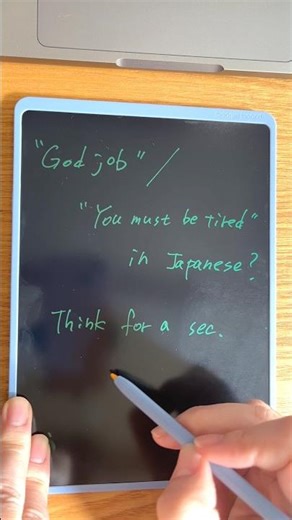 "God job" /
"You must be tired"
in Japanese?
Think for a sec.